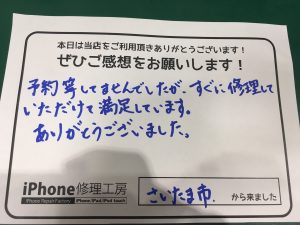 本日は当店をご利用頂きありがとうございます！
ぜひご感想をお願いします！
予約寄してませんでしたが、すぐに修理して
いただけて満足しています。
ありがとうございました。
iPhone修理工房
iPhone Repair Factory
iPhone/iPad/iPod touch
さいたま市.
から来ました